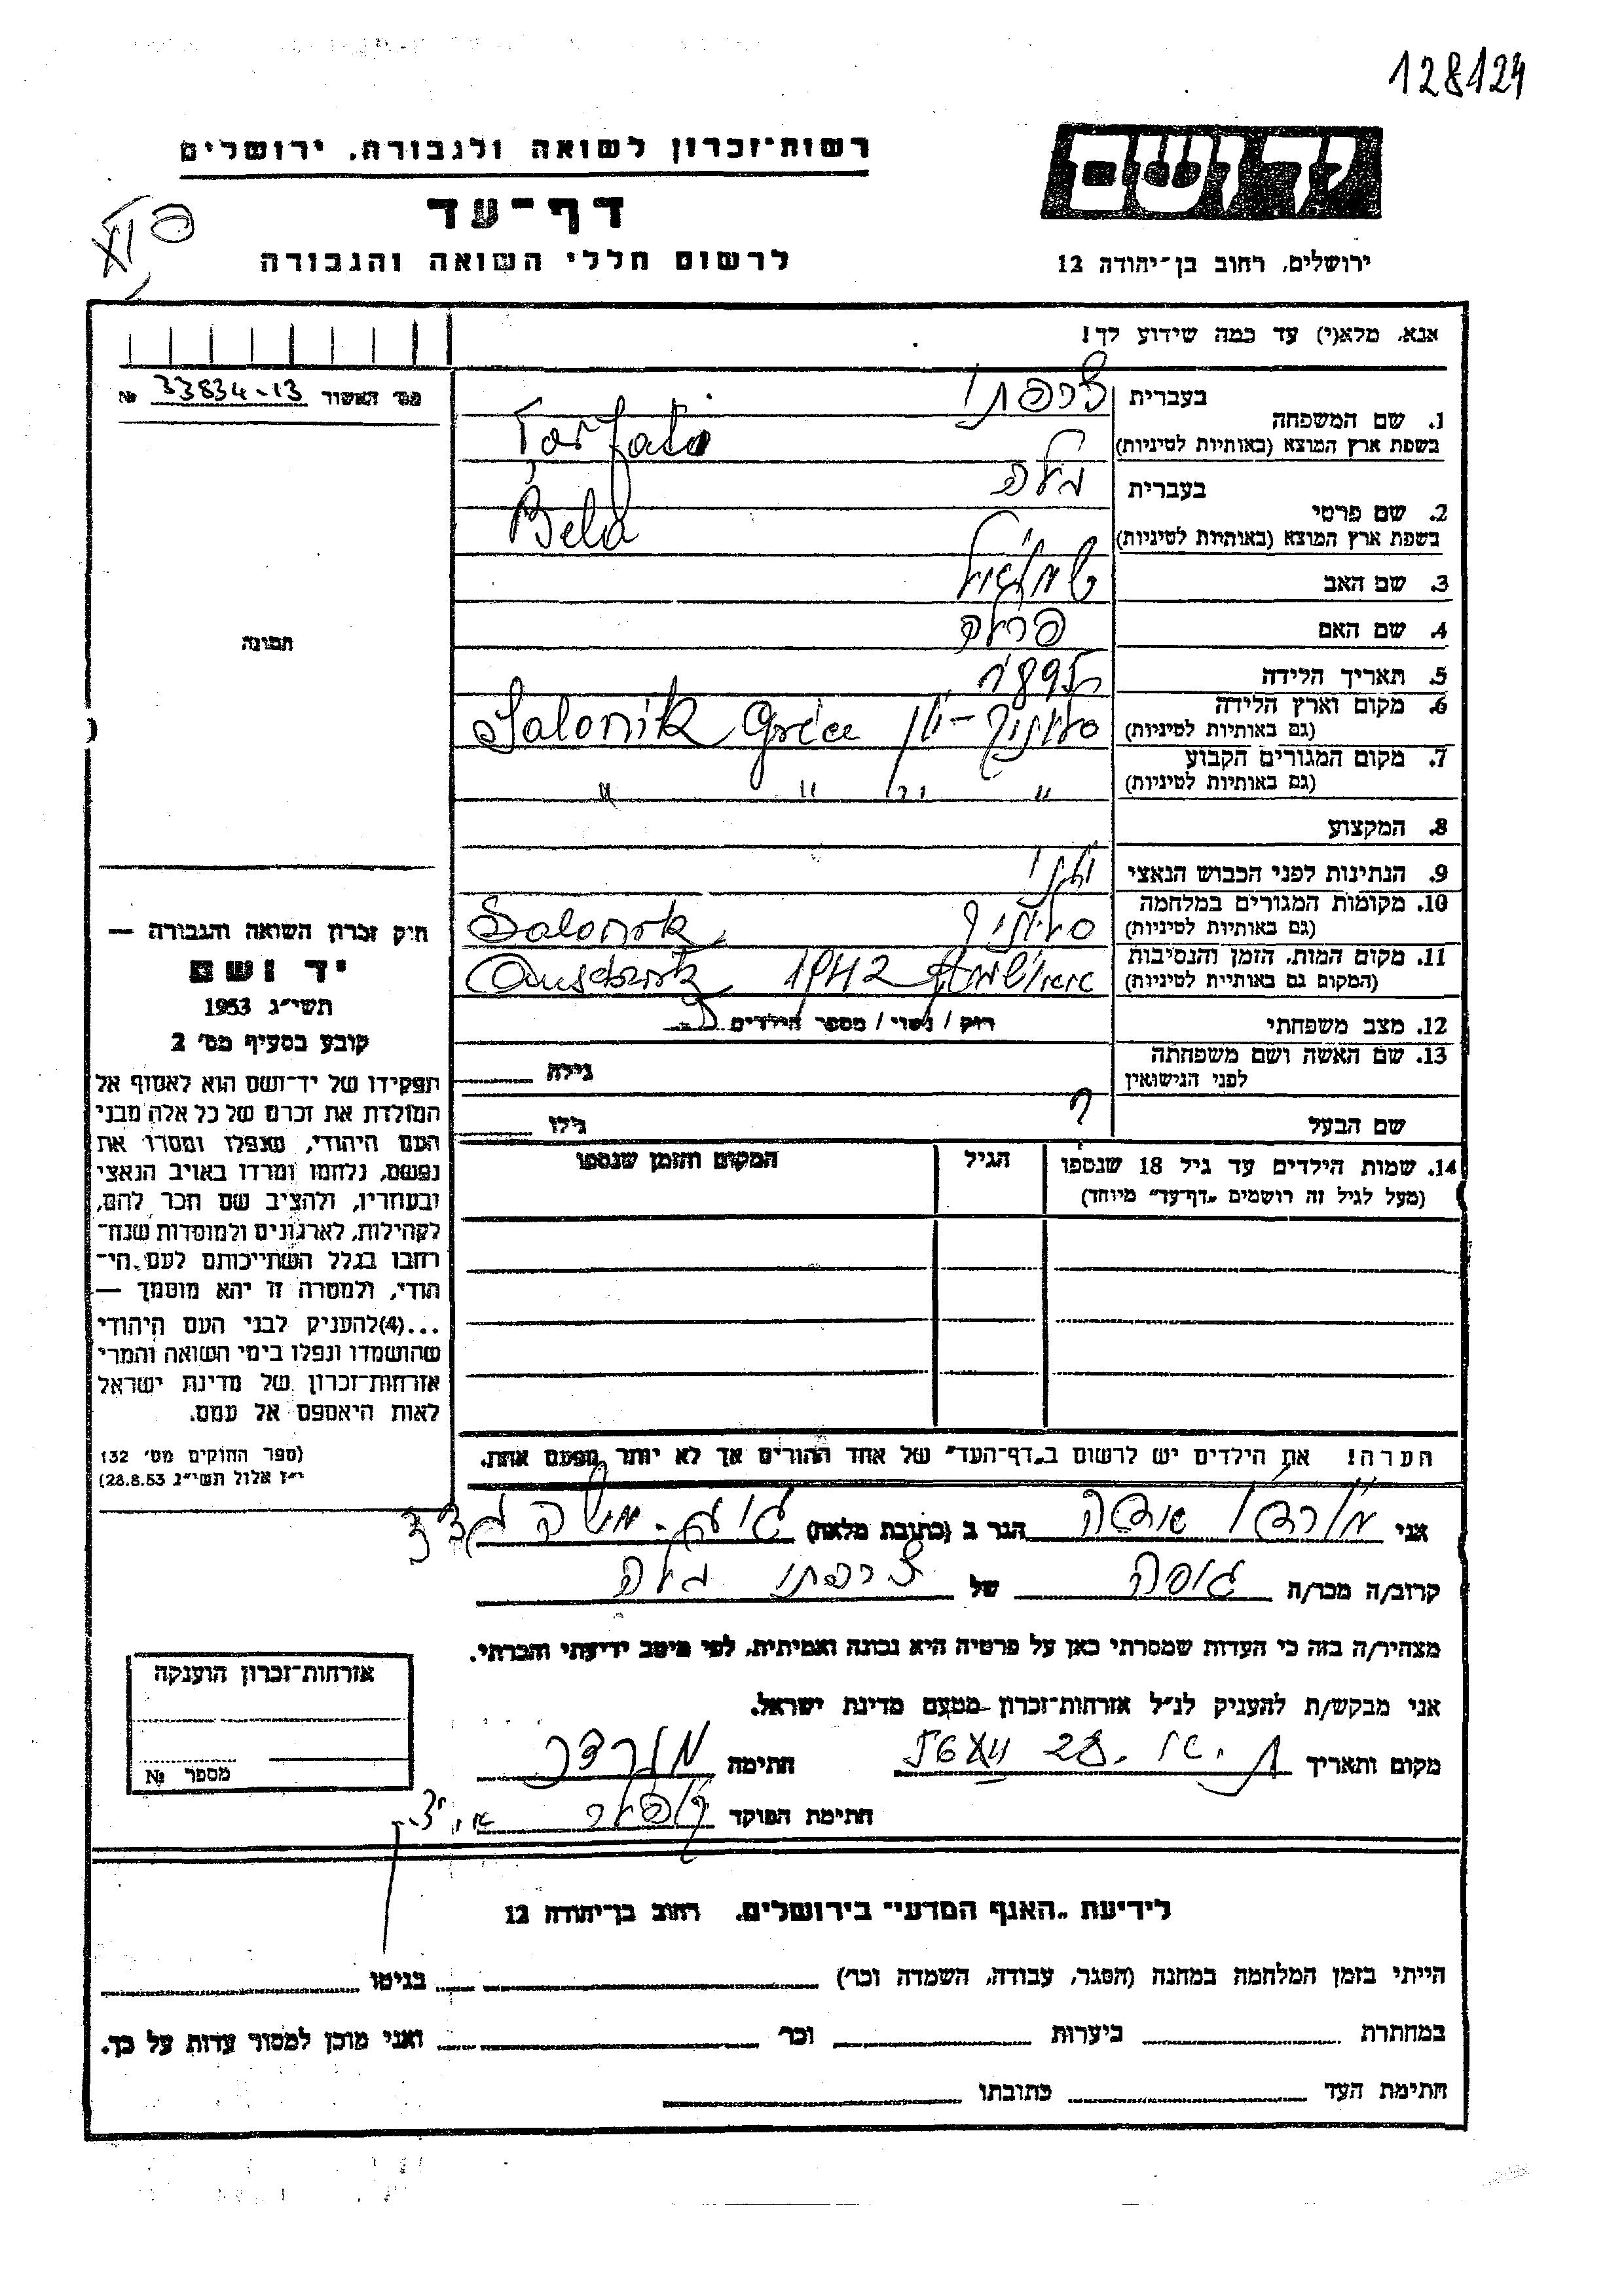 128124
רשות־זכרון לשואה ולגבורה, ירושלים
דף־עד
לרשום חללי השואה והגבורה
ירושלים, רחוב בן־יהודה 12
אנא, מלא(י) עד כמה שידוע לך!
מס׳ האשור 33834-13 №
1. שם המשפחה בעברית צרפתי
בשפת ארץ המוצא (באותיות לטיניות) Tzarfati
2. שם פרטי בעברית בלה
בשפת ארץ המוצא (באותיות לטיניות) Bela
3. שם האב שמואל
4. שם האם פרלה
5. תאריך הלידה 1897
6. מקום וארץ הלידה סלוניקי - יון Salonik Grèce
(גם באותיות לטיניות)
7. מקום המגורים הקבוע " " " "
(גם באותיות לטיניות)
8. המקצוע
9. הנתינות לפני הכבוש הנאצי יוני
10. מקומות המגורים במלחמה סלוניקי Salonik
(גם באותיות לטיניות)
11. מקום המות, הזמן והנסיבות 1942
(המקום גם באותיות לטיניות)
12. מצב משפחתי רוק / נשוי / מספר הילדים
13. שם האשה ושם משפחתה גילה
לפני הנישואין
שם הבעל ? גילו
14. שמות הילדים עד גיל 18 שנספו הגיל המקום והזמן שנספו
(מעל לגיל זה רושמים „דף־עד" מיוחד)
תמונה
חוק זכרון השואה והגבורה —
יד ושם
תשי״ג 1953
קובע בסעיף מס׳ 2
תפקידו של יד־ושם הוא לאסוף אל
המולדת את זכרם של כל אלה מבני
העם היהודי, שנפלו ומסרו את
נפשם, נלחמו ומרדו באויב הנאצי
ובעוזריו, ולהציב שם וזכר להם,
לקהילות, לארגונים ולמוסדות שנח־
רבו בגלל השתייכותם לעם הי־
הודי, ולמטרה זו יהא מוסמך —
...(4) להעניק לבני העם היהודי
שהושמדו ונפלו בימי השואה והמרי
אזרחות־זכרון של מדינת ישראל
לאות היאספם אל עמם.
(ספר החוקים מס׳ 132
י״ז אלול תשי״ג 28.8.53)
הערה! את הילדים יש לרשום ב„דף־העד" של אחד ההורים אך לא יותר מפעם אחת.
אני הגר ב (כתובת מלאה)
קרוב/ה מכר/ה גיסה של צרפתי בלה
מצהיר/ה בזה כי העדות שמסרתי כאן על פרטיה היא נכונה ואמיתית, לפי מיטב ידיעתי והכרתי.
אני מבקש/ת להעניק לנ״ל אזרחות־זכרון מטעם מדינת ישראל.
מקום ותאריך חתימה
חתימת הפוקד
אזרחות־זכרון הוענקה
מספר №
לידיעת „האגף המדעי" בירושלים, רחוב בן־יהודה 12
הייתי בזמן המלחמה במחנה (הסגר, עבודה, השמדה וכו׳) בגיטו
במחתרת ביערות וכו׳ ואני מוכן למסור עדות על כך.
חתימת העד כתובתו